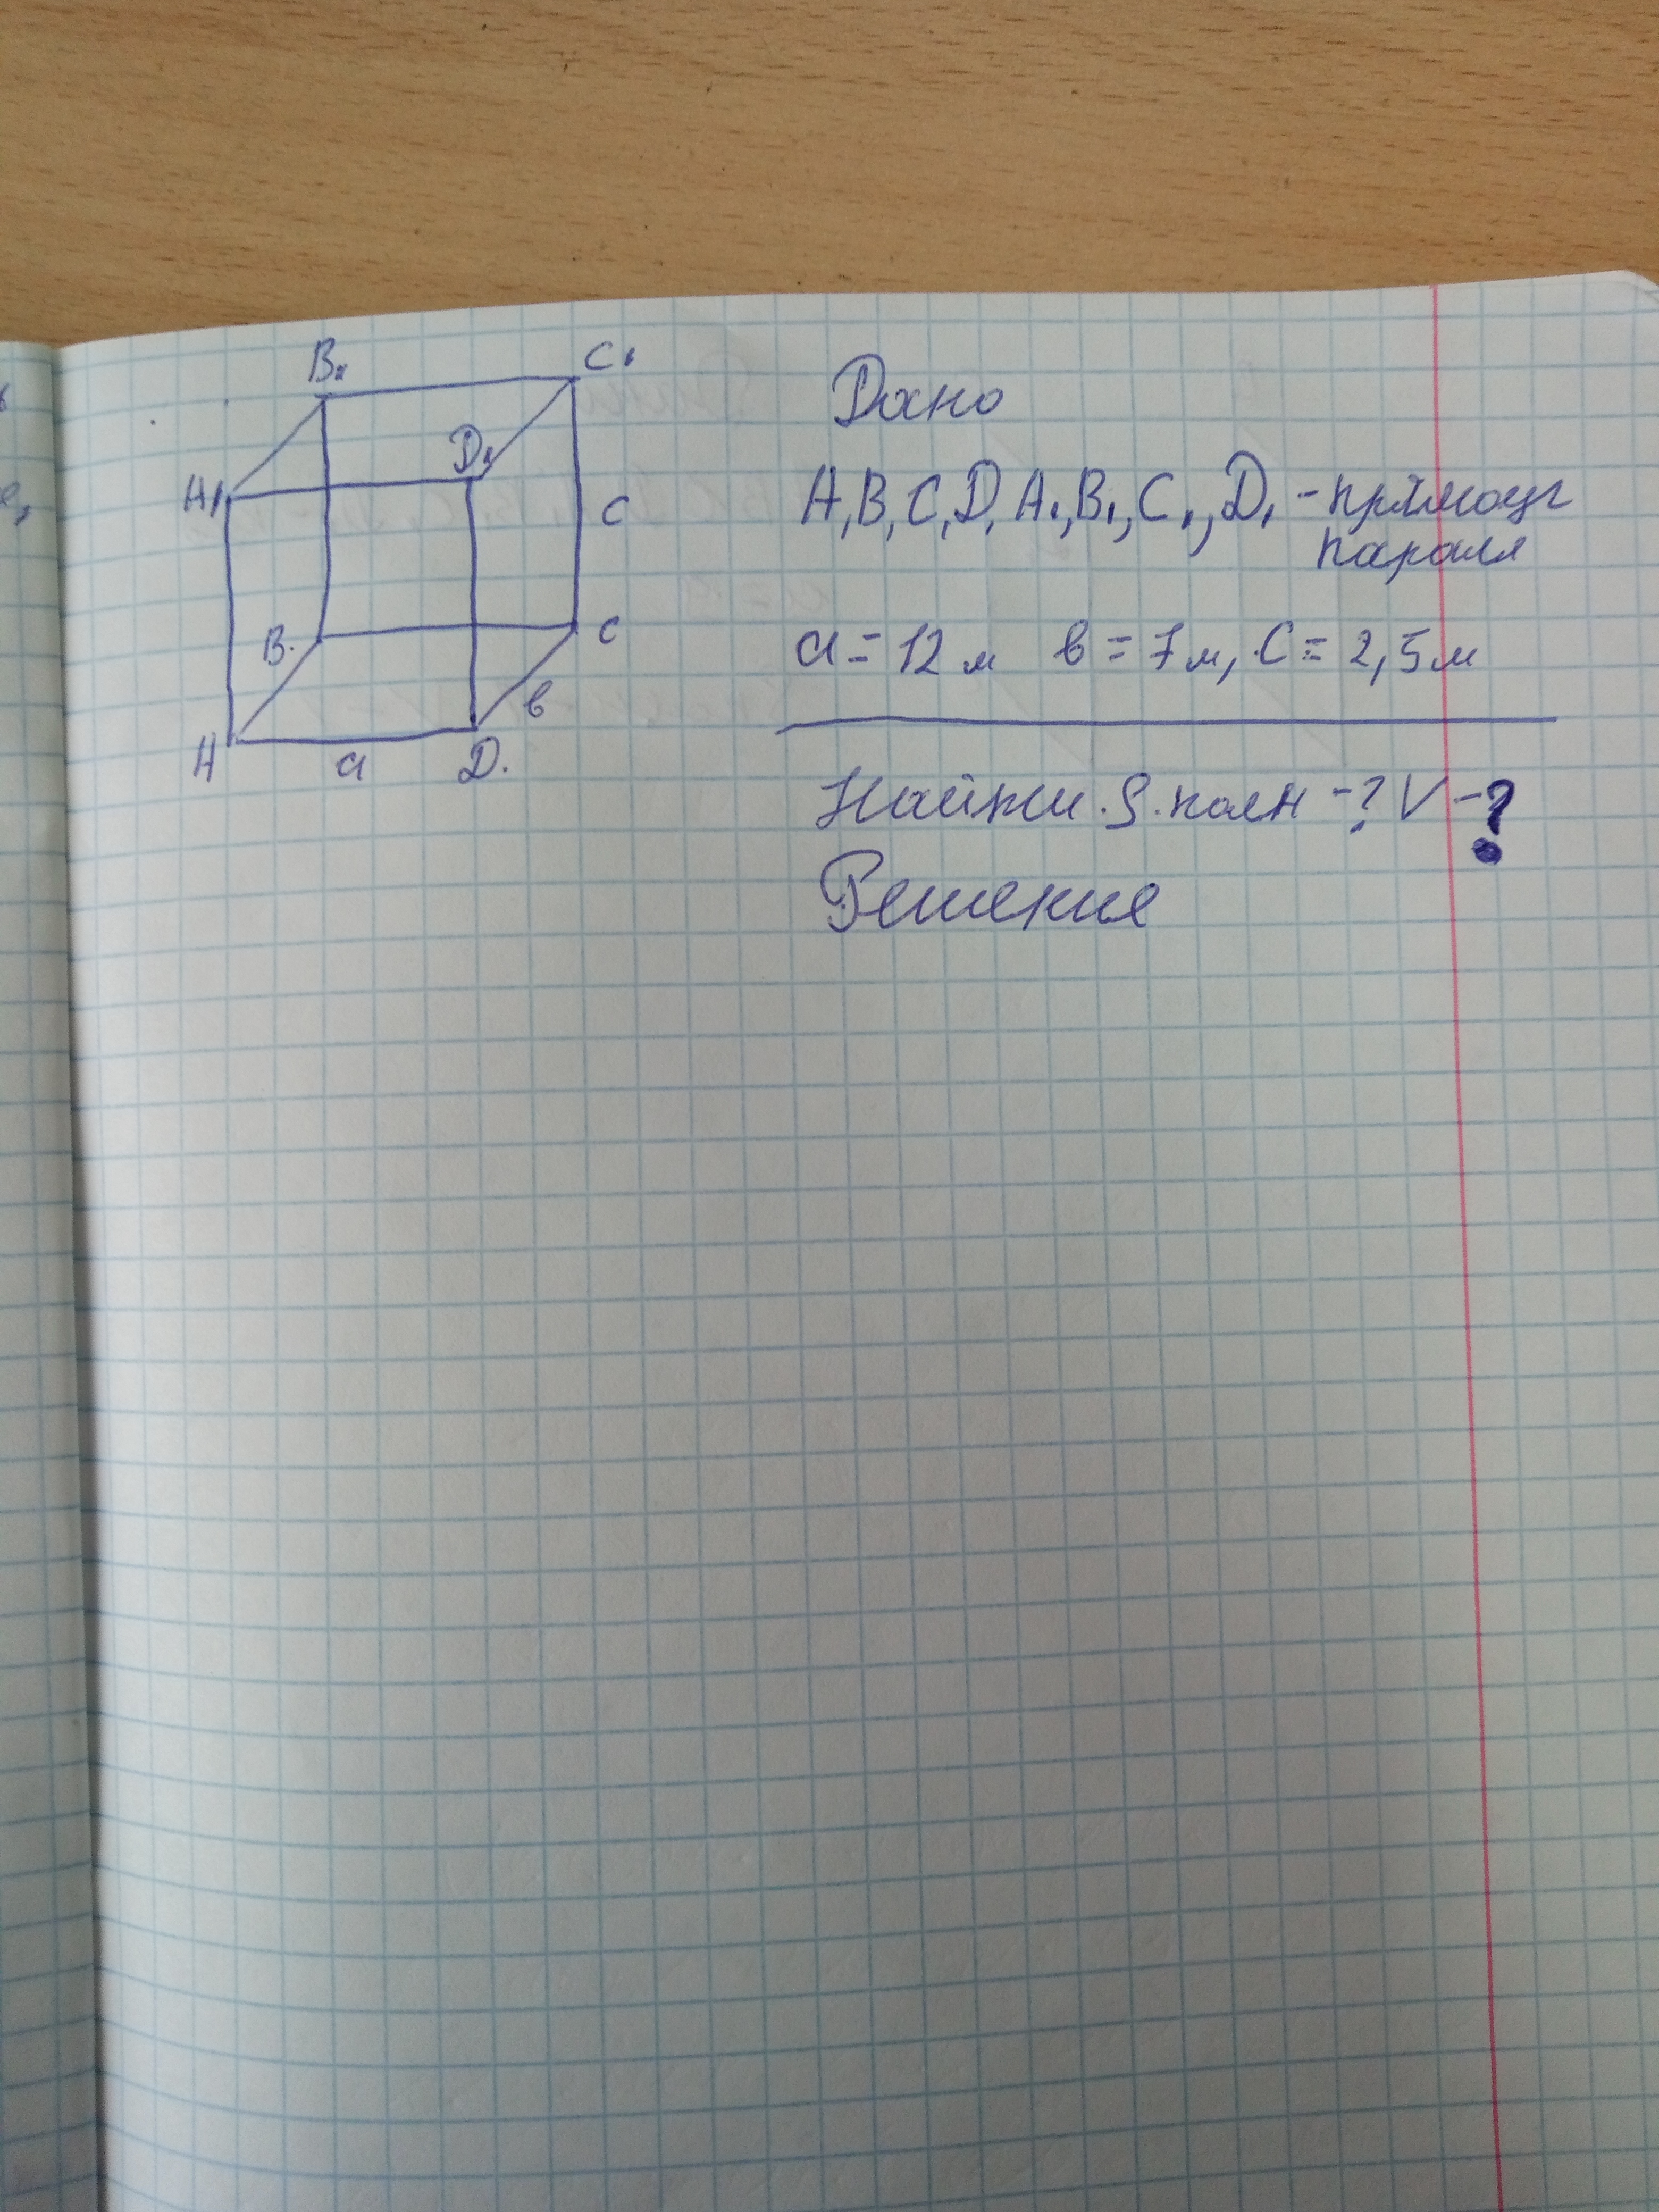 B₁ C₁
A₁ D₁
C
B. C
в
A a D.
Дано
A, B, C, D, A₁, B₁, C₁, D₁ - прямоуг
паралл
a = 12 м в = 7 м, C = 2,5 м
Найти. S. полн - ? V - ?
Решение